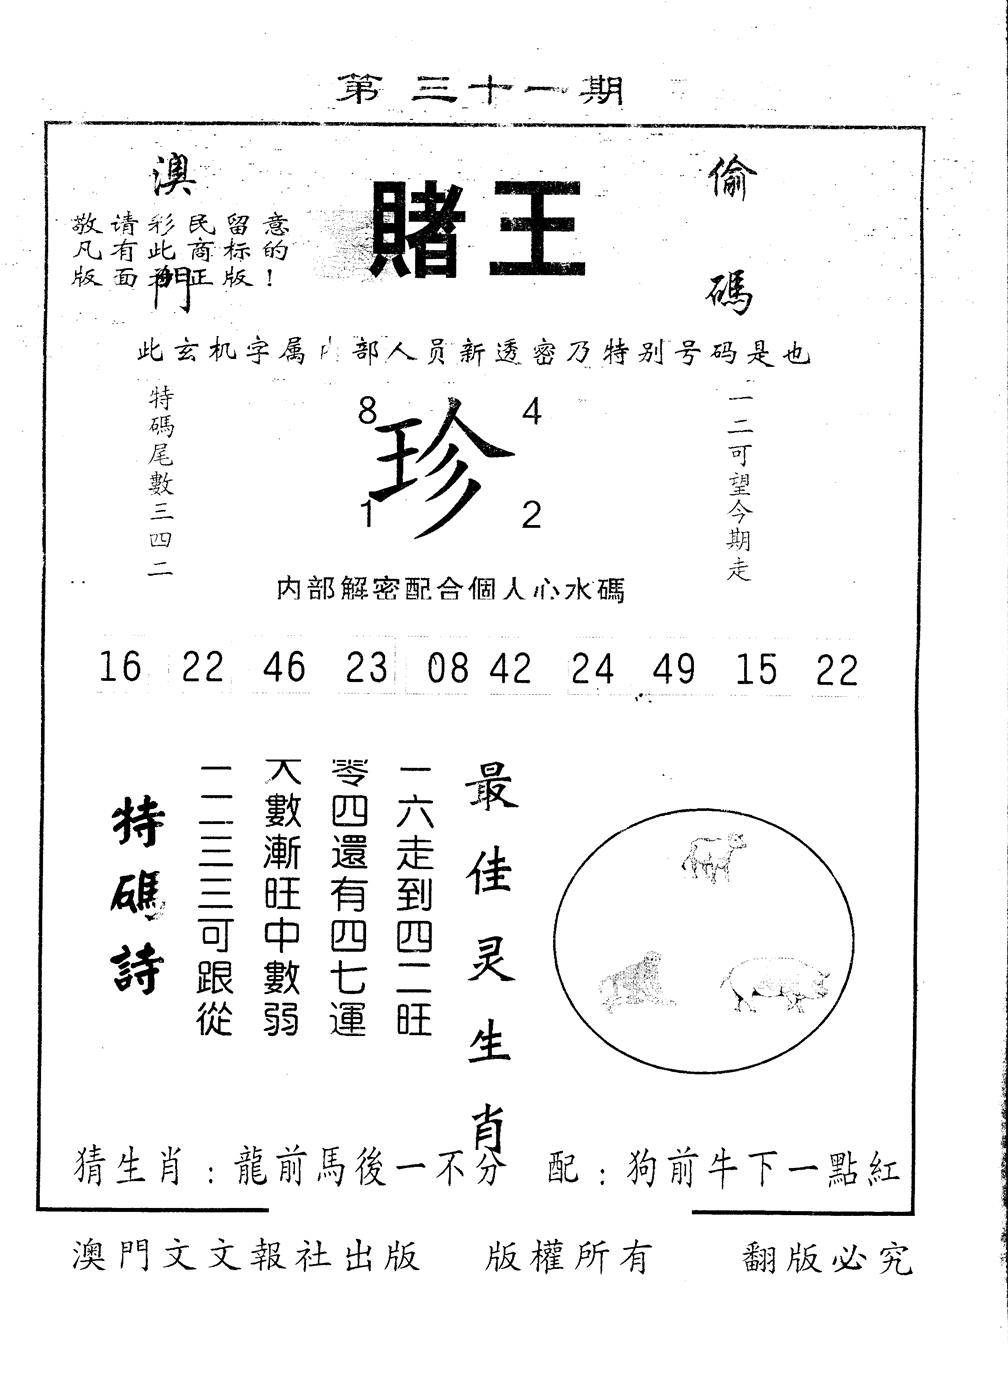 第三十一期
澳門
賭王
偷碼
敬请彩民留意
凡有此商标的
版面 正版！
此玄机字属内部人员新透密乃特别号码是也
特碼尾數三四二
8 4
珍
1 2
一二可望今期走
内部解密配合個人心水碼
16 22 46 23 08 42 24 49 15 22
最佳灵生肖
一六走到四二旺
零四還有四七運
大數漸旺中數弱
一二三三可跟從
特碼詩
猜生肖：龍前馬後一不分 配：狗前牛下一點紅
澳門文文報社出版 版權所有 翻版必究